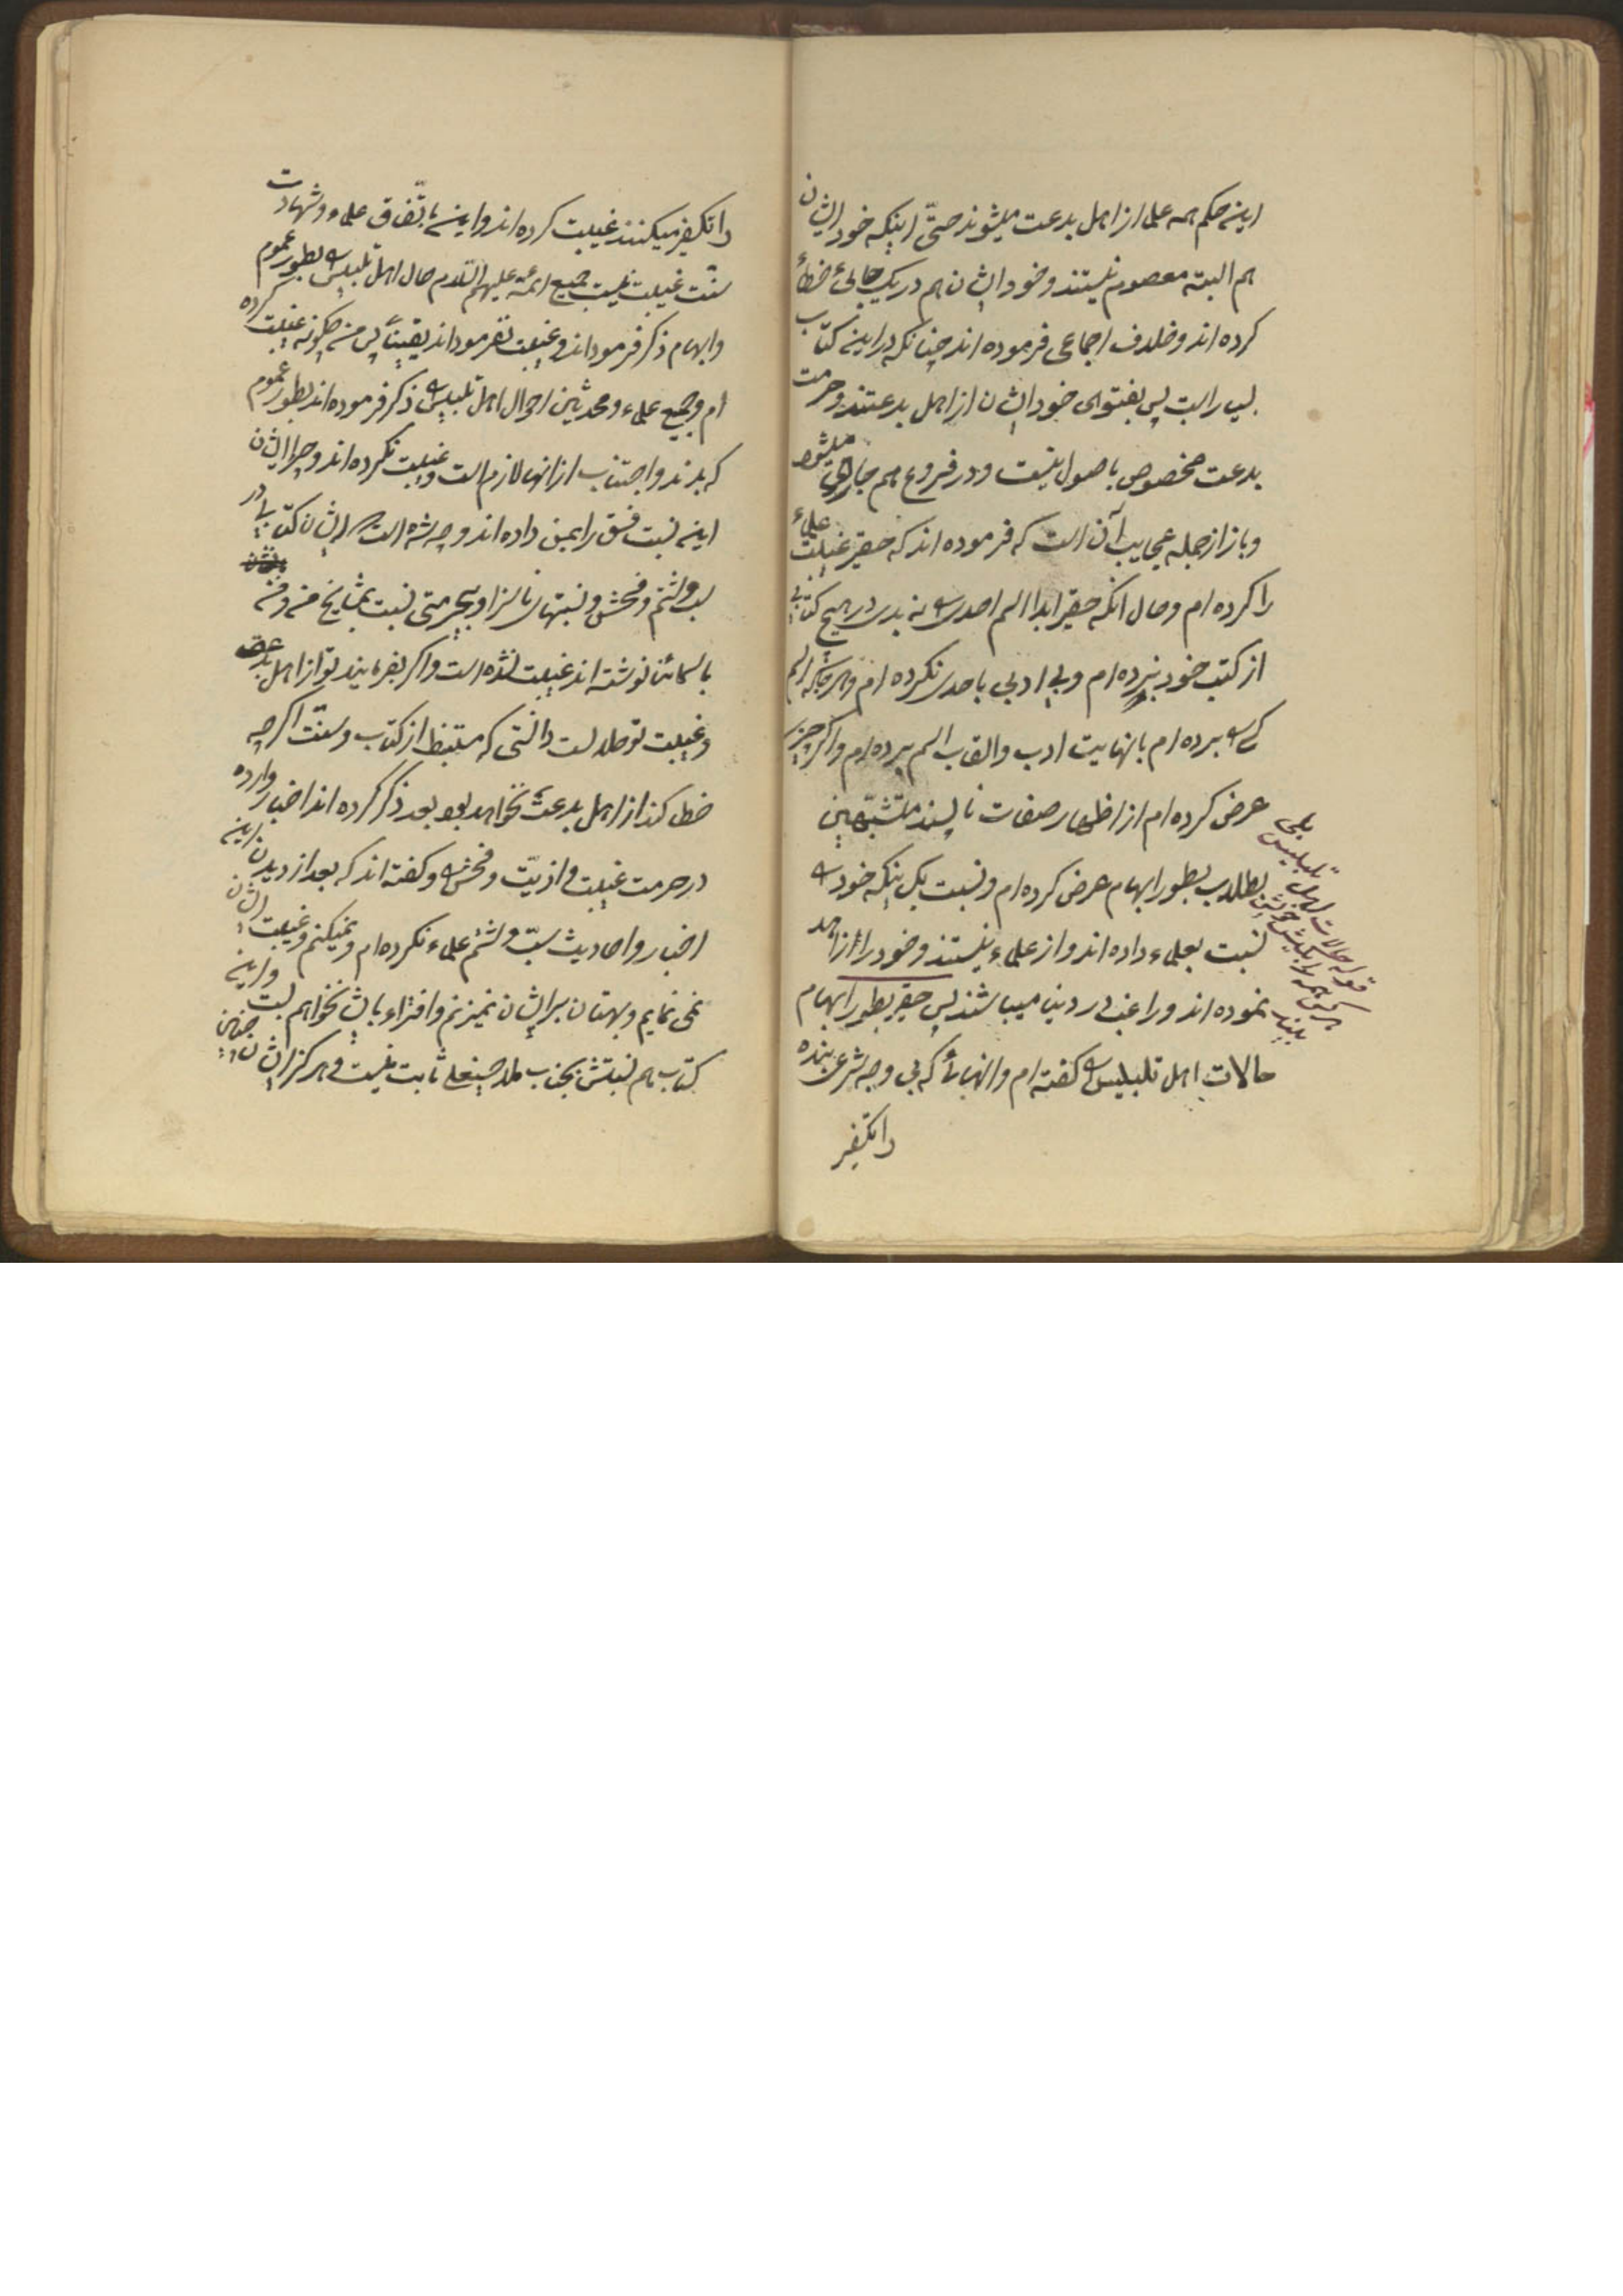 این حکم همه علما از اهل بدعت میشوند حتّی اینکه خود ایشان
هم البته معصوم نیستند و خود ایشان هم در یک جائی خطأ
کرده اند و خلاف اجماعی فرموده اند چنانکه در این کتاب
بسیار است پس بفتوای خود ایشان از اهل بدعتند و حرمت
بدعت مخصوص باصول نیست و در فروع هم جاری میشود
و باز از جمله عجایب آن است که فرموده اند که حقیر غیبت علماء
را کرده ام و حال انکه حقیر ابدا اسم احدی را به بدی در هیچ کتابی
از کتب خود نبرده ام و بی ادبی باحدی نکرده ام و هر جا که اسم
کسی برده ام بانهایت ادب و القاب اسم برده ام و اگر چیزی
عرض کرده ام از اظهار صفات ناپسند متشبّهین
بطلاب بطور ابهام عرض کرده ام و نسبت بکسانیکه خود را
نسبت بعلماء داده اند و از علماء نیستند و خود را از اهل
نموده اند و راغب در دنیا میباشند پس حقیر بطور ابهام
حالات اهل تلبیس را گفته ام و انهائی که بی وجه شرعی بنده
را تکفیر
بلی
قوله حالات اهل تلبیس
هرکس همه را بکیش خویش
پندارد
را تکفیر میکنند غیبت کرده اند و این باتّفاق علماء و شهادت
سنّت غیبت نیست جمیع ائمّه علیهم السّلام حال اهل تلبیس را بطور عموم
و ابهام ذکر فرموداند و غیبت نفرموداند یقیناً پس من چگونه غیبت کرده
ام و جمیع علماء و محدثین احوال اهل تلبیس را ذکر فرموده اند بطور عموم
که بدند و اجتناب از انها لازم است و غیبت نکرده اند و چرا ایشان
این نسبت فسق را بمن داده اند و چه شده است که ایشان کتابی در
سب و شتم و فحش و نسبتهای ناسزا و بیحرمتی نسبت بمشایخ من و من
باسمائنا نوشته اند غیبت نشده است و اگر بفرمایند تو از اهل بدعتی
و غیبت تو حلال است دانستی که مستنبط از کتاب و سنّت اگر چه
خطا کند از اهل بدعت نخواهد بود بعد ذکر کرده اند اخبار وارده
در حرمت غیبت و اذیّت و فحش را و گفته اند که بعد از دیدن این
اخبار و احادیث سبّ و شتم علماء نکرده ام و نمیکنم و غیبت ایشان
نمی نمایم و بهتان بر ایشان نمیزنم و افتراء بایشان نخواهم بست و این
کتاب هم نسبتش بجناب ملا حسینعلی ثابت نیست و هرگز ایشان چنین